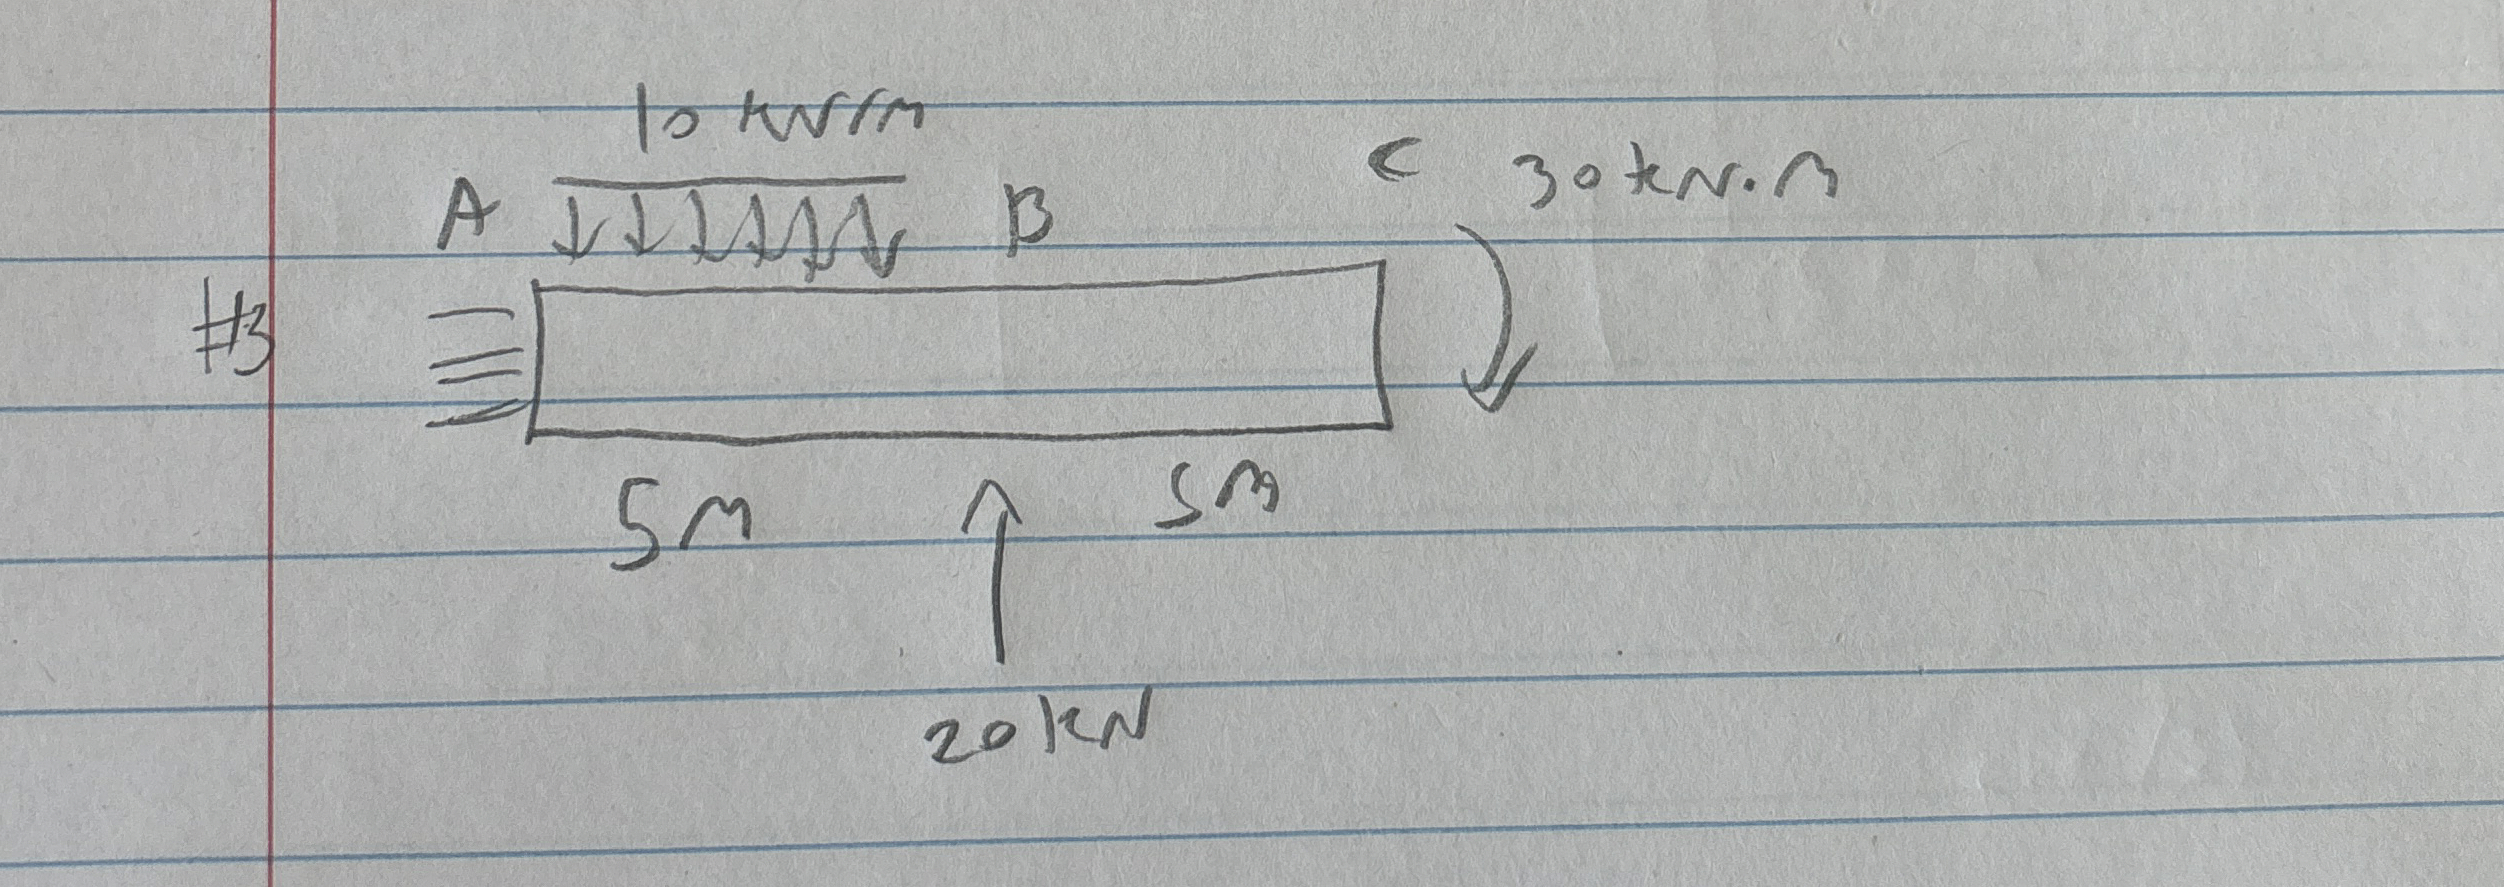 10 kN/m
A B C 30 kN.m
#3
5m 5m
20 kN